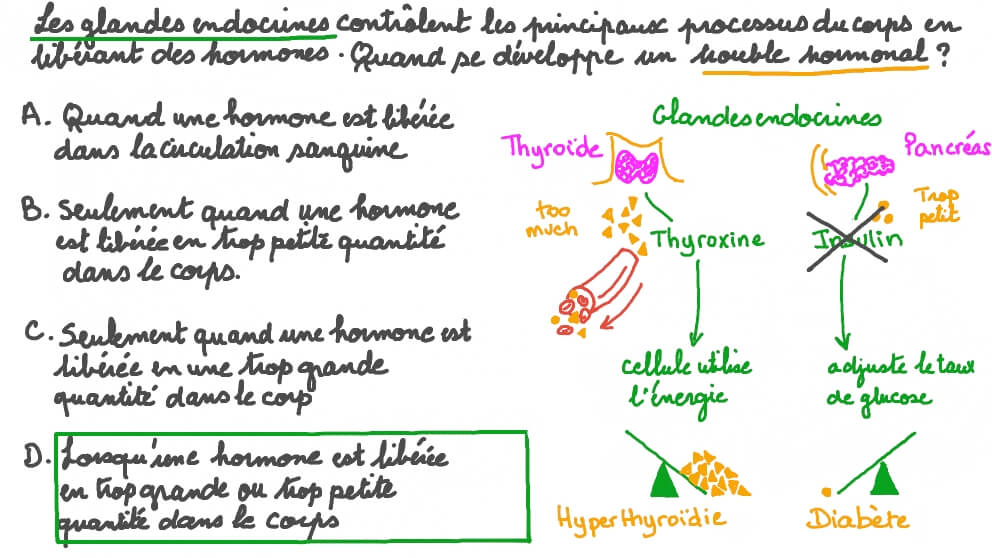 Les glandes endocrines contrôlent les principaux processus du corps en
libérant des hormones. Quand se développe un trouble hormonal ?
A. Quand une hormone est libérée
dans la circulation sanguine
B. Seulement quand une hormone
est libérée en trop petite quantité
dans le corps.
C. Seulement quand une hormone est
libérée en une trop grande
quantité dans le corp
D. Lorsqu'une hormone est libérée
en trop grande ou trop petite
quantité dans le corps
Glandes endocrines
Thyroïde
Pancréas
too
much
Trop
petit
Thyroxine
Insulin
cellule utilise
l'énergie
adjuste le taux
de glucose
Hyperthyroïdie
Diabète